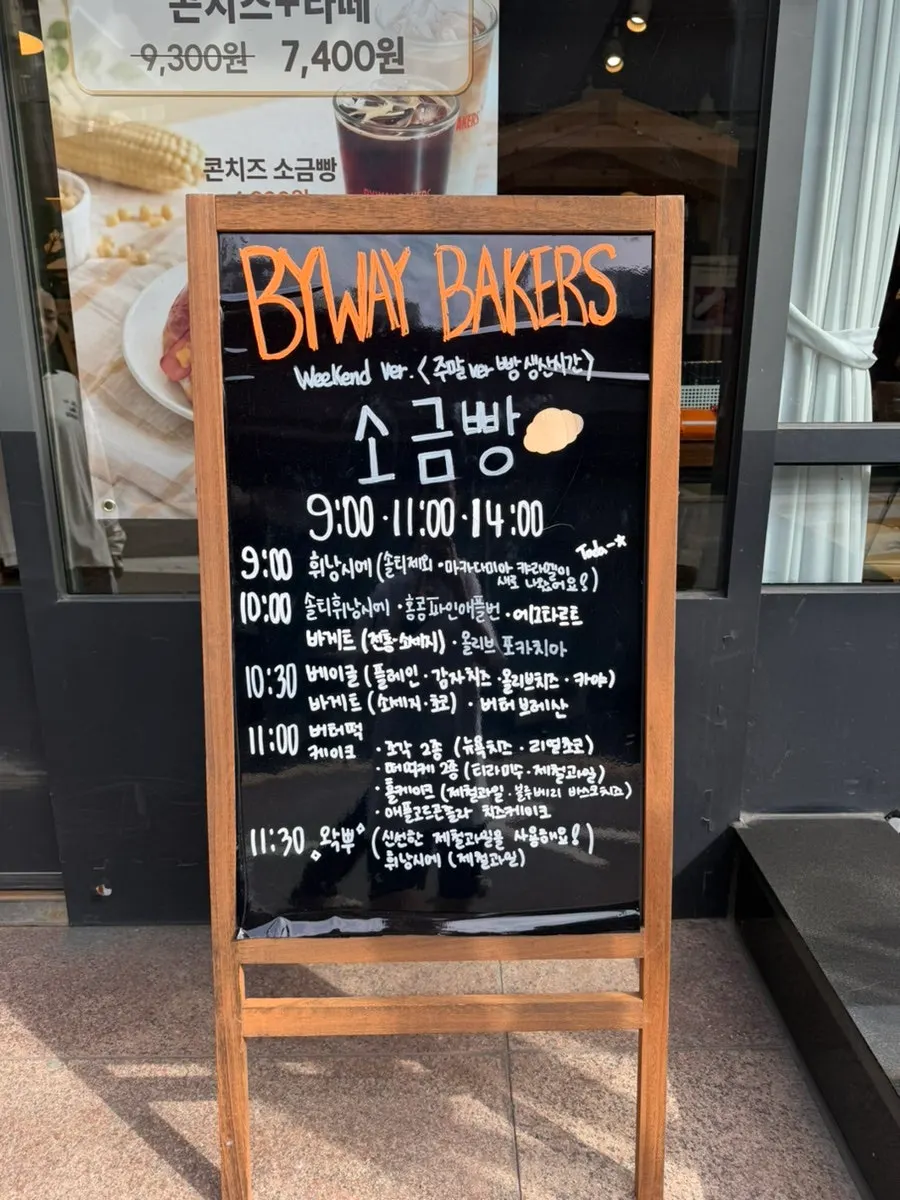 콘치즈+라떼
9,300원 7,400원
콘치즈 소금빵
BAKERS
BYWAY BAKERS
BYWAY BAKERS
Weekend ver. <주말 ver 빵 생산시간>
소금빵
9:00 · 11:00 · 14:00
Tada~☆
9:00 휘낭시에 (솔티제외 · 마카다미아 캬라멜이
새로 나왔어요!)
10:00 솔티휘낭시에 · 홍콩파인애플번 · 에그타르트
바게트 (전통·소세지) · 올리브 포카치아
10:30 베이글 (플레인 · 감자치즈 · 올리브치즈 · 카야)
바게트 (소세지·초코) · 버터 브레산
11:00 버터떡
케이크 · 조각 2종 (뉴욕치즈 · 리얼초코)
· 떠먹케 2종 (티라미수 · 제철과일)
· 홀케이크 (제철과일 · 블루베리 바스크치즈)
· 애플고르곤졸라 치즈케이크
11:30 왁뿌 (신선한 제철과일을 사용해요!)
휘낭시에 (제철과일)